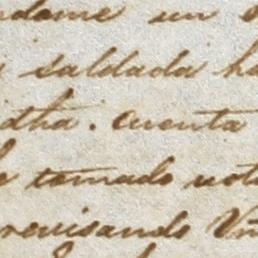 ndome un
saldada ha
dha. cuenta
tomado nota
revisando Vm